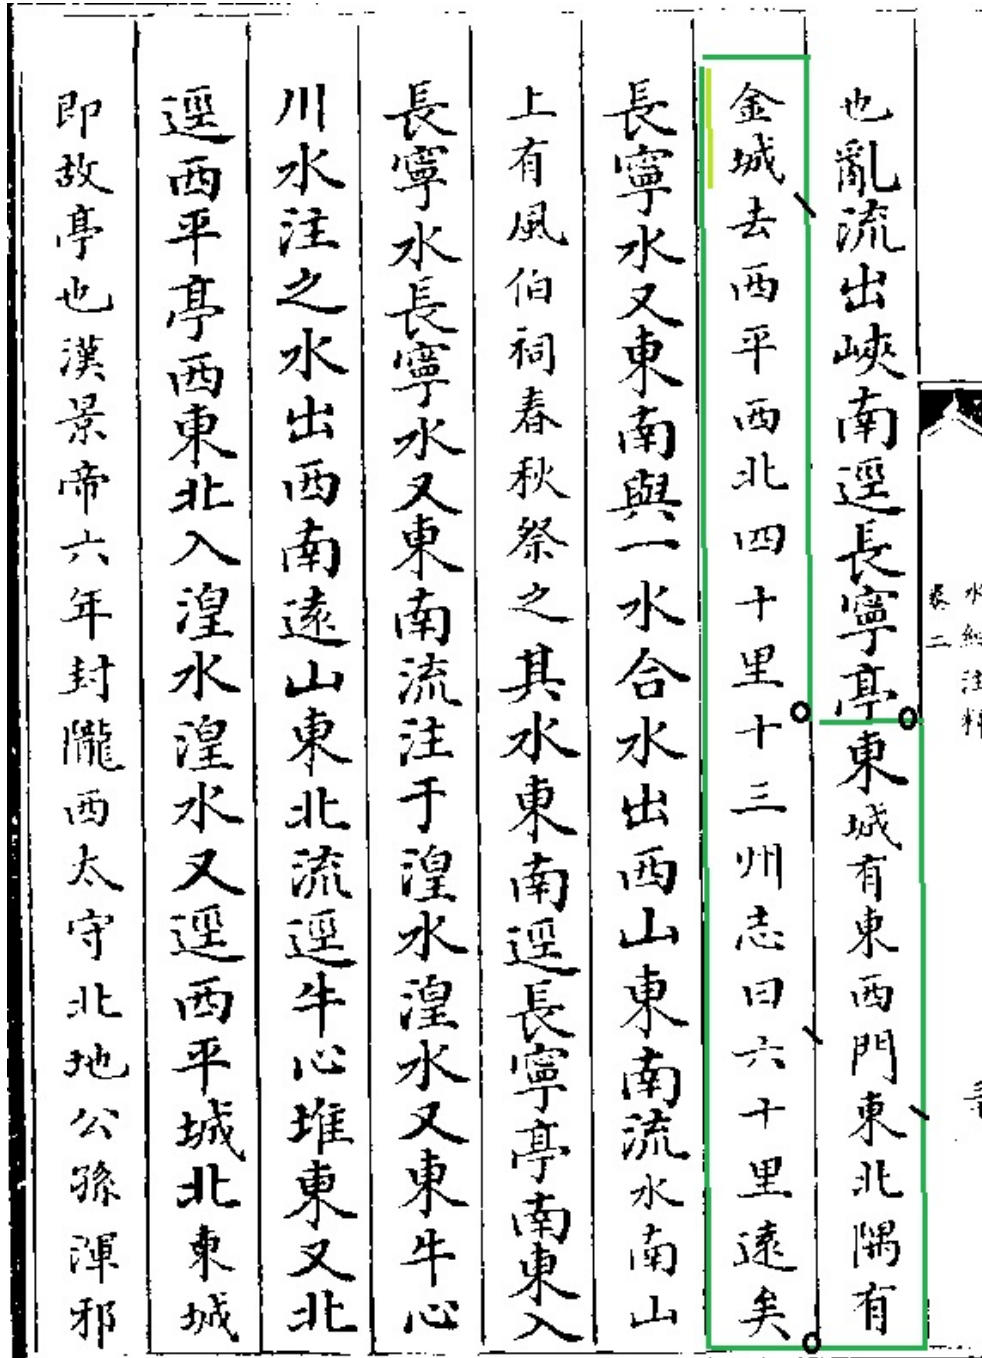 水經注釋
卷二
也亂流出峽南逕長寧亭東城有東西門東北隅有
金城去西平西北四十里十三州志曰六十里遠矣
長寧水又東南與一水合水出西山東南流水南山
上有風伯祠春秋祭之其水東南逕長寧亭南東入
長寧水長寧水又東南流注于湟水湟水又東牛心
川水注之水出西南遠山東北流逕牛心堆東又北
逕西平亭西東北入湟水湟水又逕西平城北東城
即故亭也漢景帝六年封隴西太守北地公孫渾邪